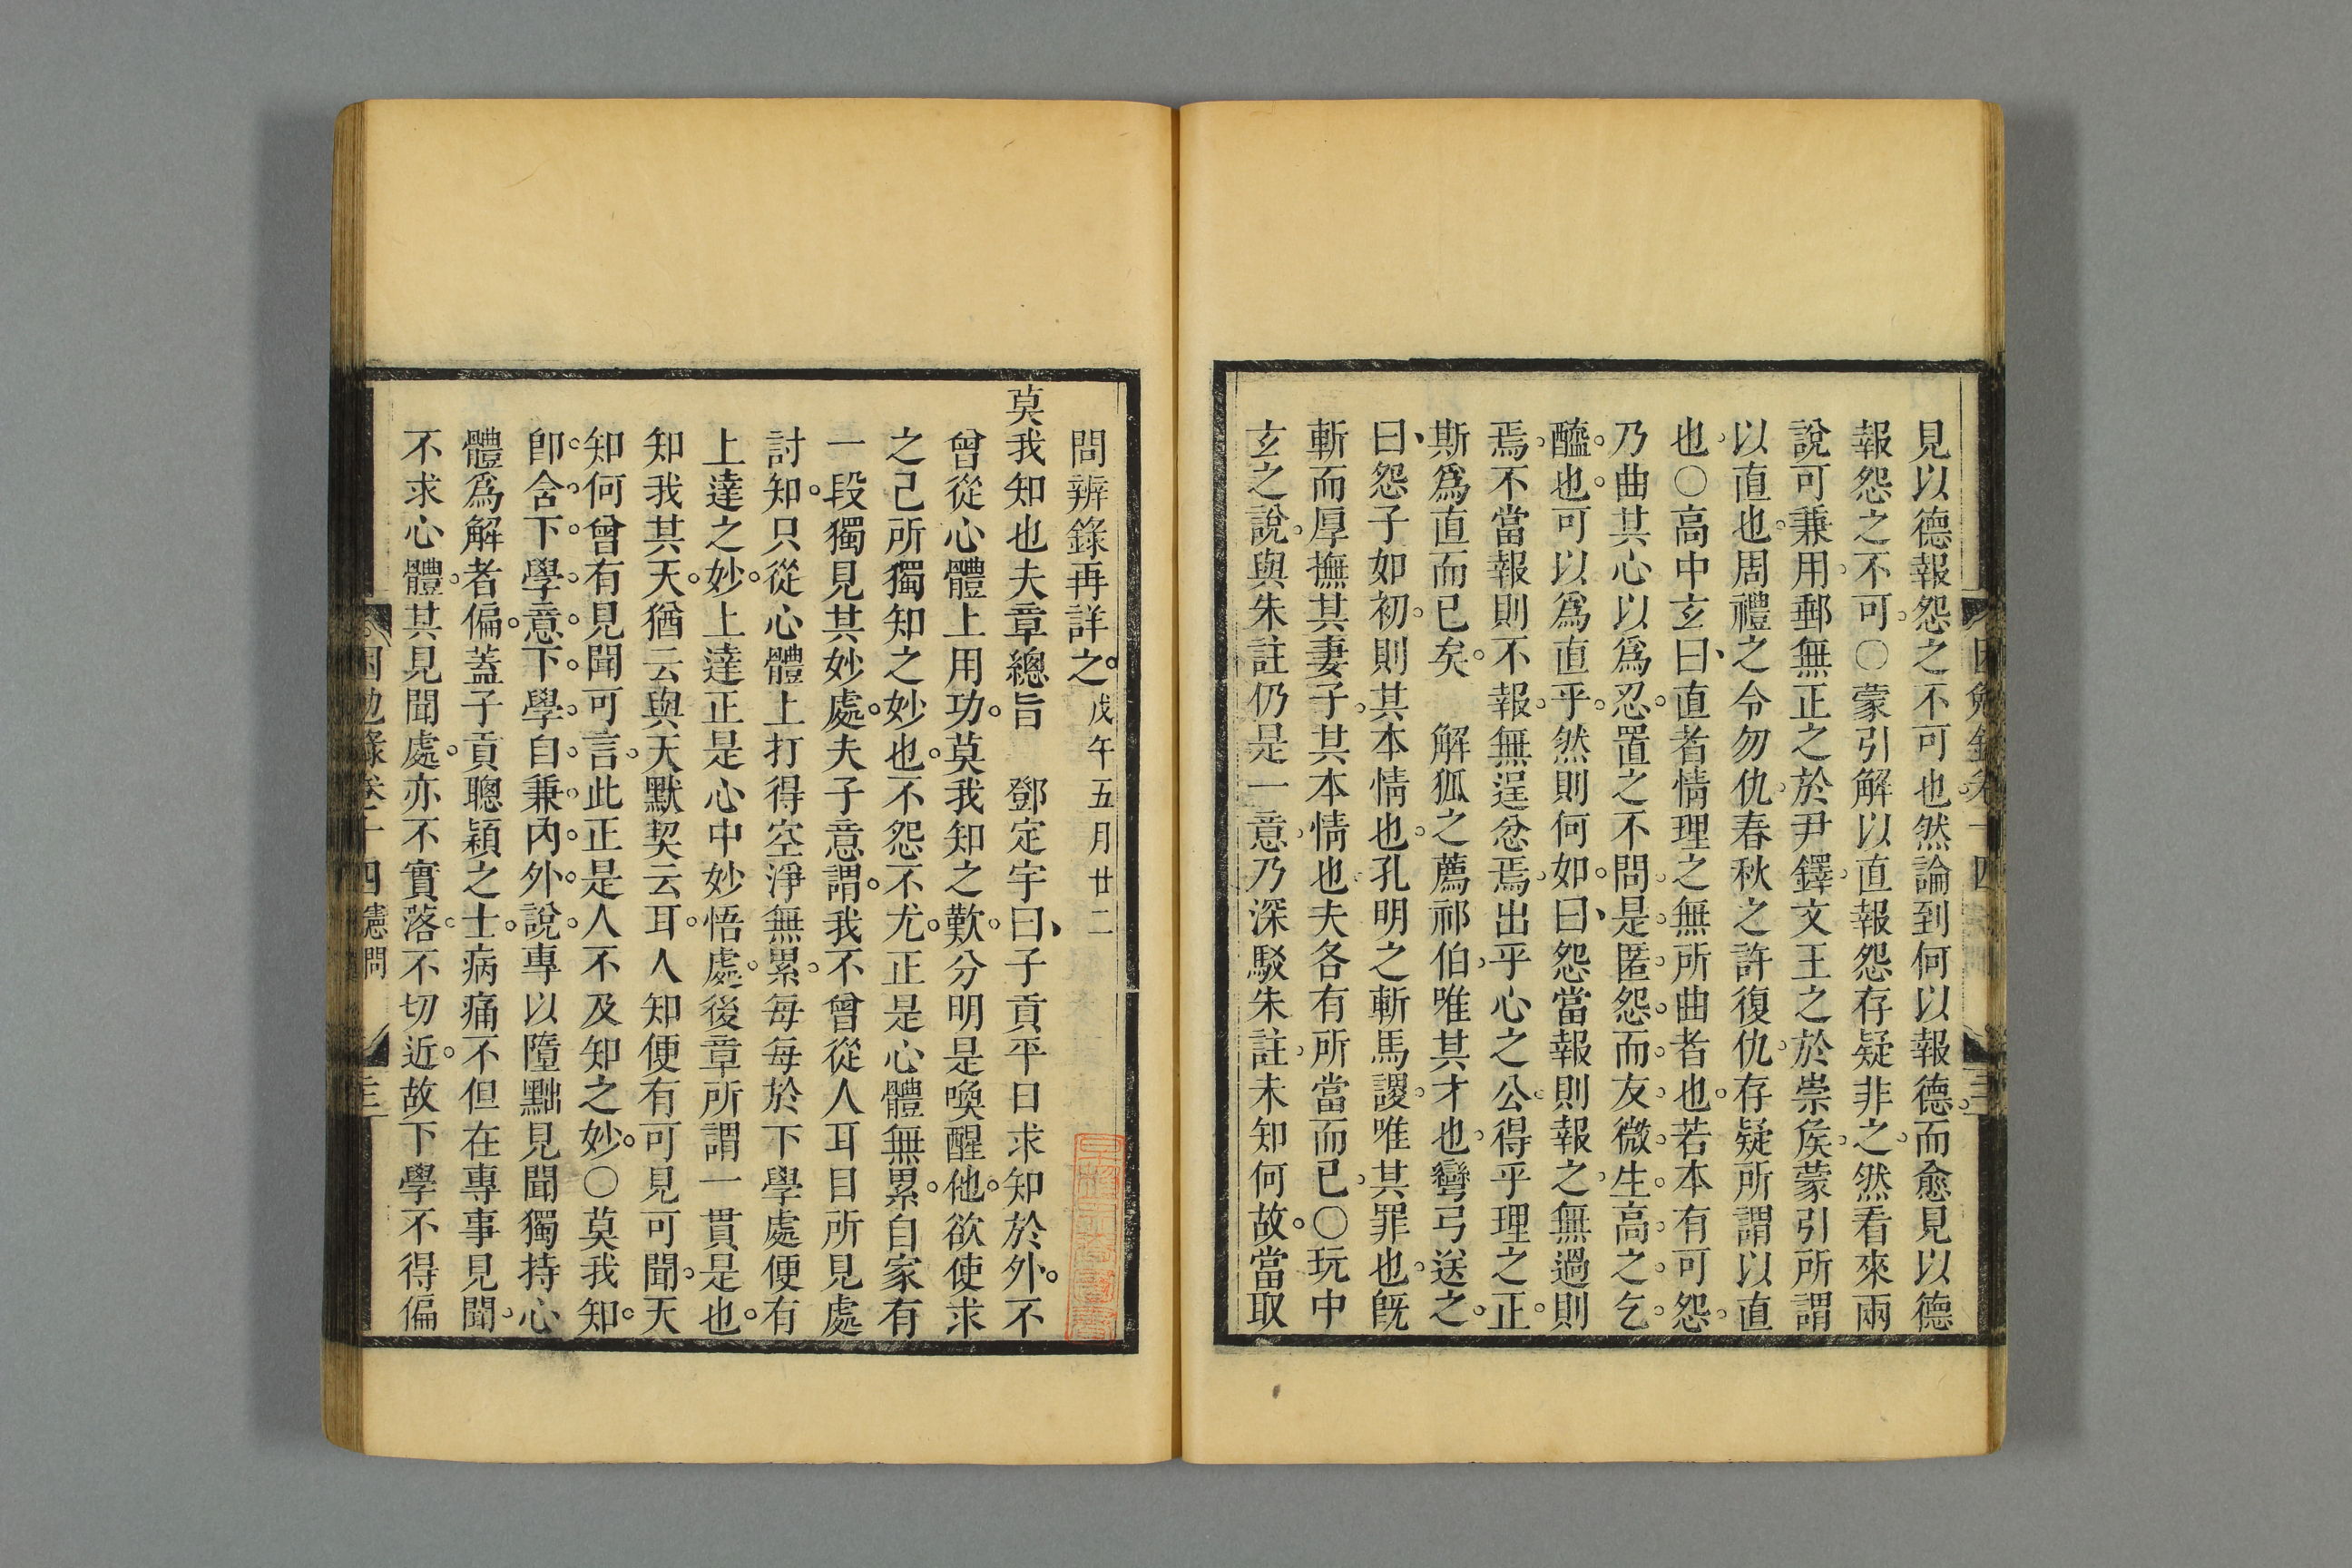 見以德報怨之不可也然論到何以報德而愈見以德
報怨之不可○蒙引解以直報怨存疑非之然看來兩
說可兼用郵無正之於尹鐸文王之於崇矦蒙引所謂
以直也周禮之令勿仇春秋之許復仇存疑所謂以直
也○高中玄曰直者情理之無所曲者也若本有可怨
乃曲其心以爲忍置之不問是匿怨而友微生高之乞
醯也可以爲直乎然則何如曰怨當報則報之無過則
焉不當報則不報無逞忿焉出乎心之公得乎理之正
斯爲直而已矣　解狐之薦祁伯唯其才也彎弓送之
曰怨子如初則其本情也孔明之斬馬謖唯其罪也旣
斬而厚撫其妻子其本情也夫各有所當而已○玩中
玄之說與朱註仍是一意乃深駁朱註未知何故當取
問辨錄再詳之戊午五月廿二
莫我知也夫章總旨　鄧定宇曰子貢平日求知於外不
曾從心體上用功莫我知之歎分明是喚醒他欲使求
之己所獨知之妙也不怨不尤正是心體無累自家有
一段獨見其妙處夫子意謂我不曾從人耳目所見處
討知只從心體上打得空淨無累每每於下學處便有
上達之妙上達正是心中妙悟處後章所謂一貫是也
知我其天猶云與天默契云耳人知便有可見可聞天
知何曾有見聞可言此正是人不及知之妙○莫我知
卽含下學意下學自兼內外說專以隳黜見聞獨持心
體爲解者偏蓋子貢聰穎之士病痛不但在專事見聞
不求心體其見聞處亦不實落不切近故下學不得偏
困勉錄卷十四 憲問